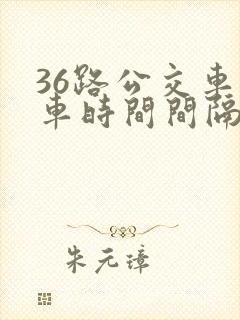 36路公交車
車時間間隔
朱元璋